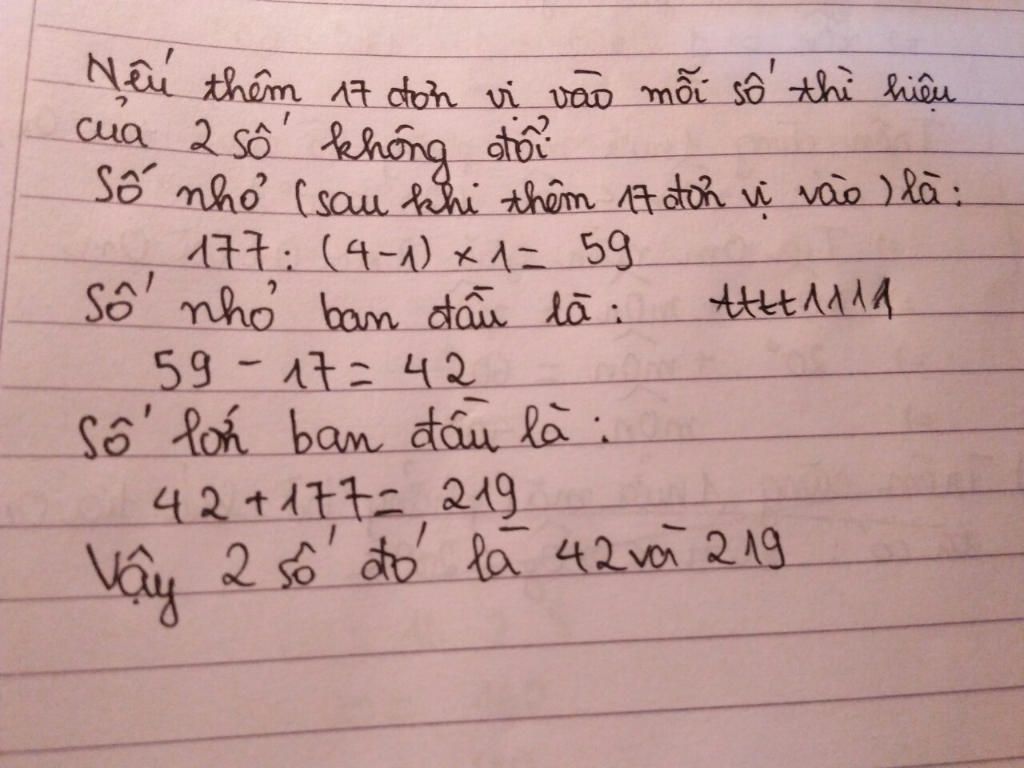 Nếu thêm 17 đơn vị vào mỗi số thì hiệu
của 2 số không đổi
Số nhỏ (sau khi thêm 17 đơn vị vào) là:
177 : (4-1) × 1 = 59
Số nhỏ ban đầu là :
59 - 17 = 42
Số lớn ban đầu là :
42 + 177 = 219
Vậy 2 số đó là 42 và 219